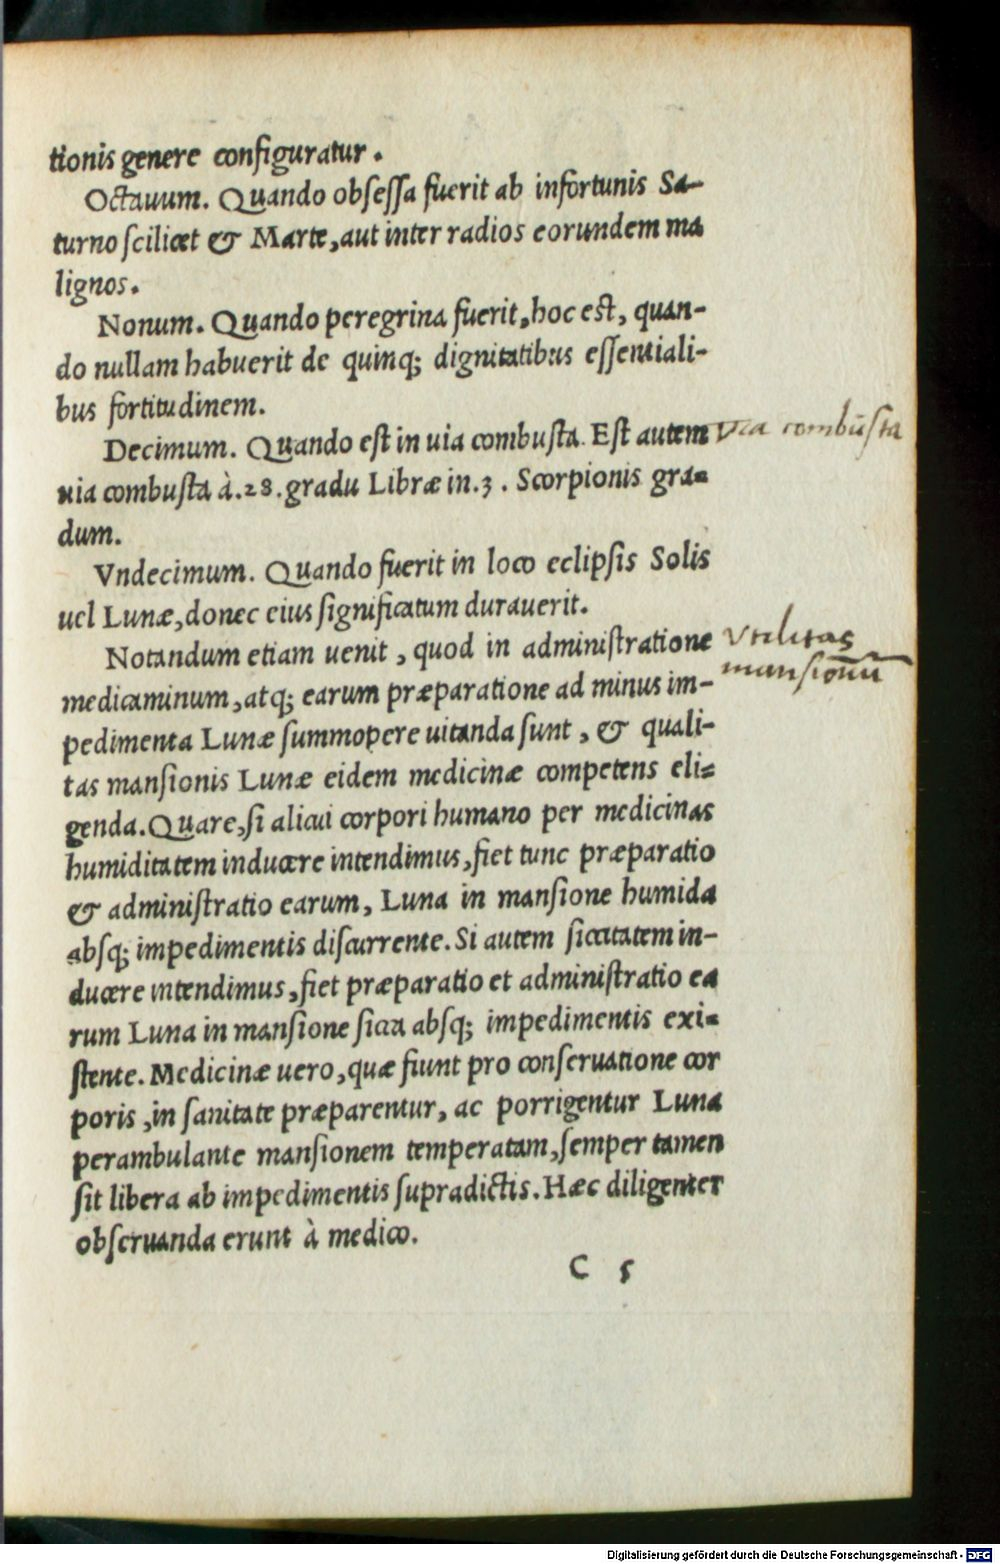 tionis genere configuratur.
Octauum. Quando obſeſſa fuerit ab infortunis Sa-
turno ſcilicet & Marte, aut inter radios eorundem ma
lignos.
Nonum. Quando peregrina fuerit, hoc eſt, quan-
do nullam habuerit de quinq; dignitatibus eſſentiali-
bus fortitudinem.
Decimum. Quando eſt in uia combuſta. Eſt autem
uia combuſta à .28. gradu Libræ in .3. Scorpionis gra-
dum.
Vndecimum. Quando fuerit in loco eclipſis Solis
uel Lunæ, donec eius ſignificatum durauerit.
Notandum etiam uenit, quod in adminiſtratione
medicaminum, atq; earum præparatione ad minus im-
pedimenta Lunæ ſummopere uitanda ſunt, & quali-
tas manſionis Lunæ eidem medicinæ competens eli-
genda. Quare, ſi alicui corpori humano per medicinas
humiditatem inducere intendimus, fiet tunc præparatio
& adminiſtratio earum, Luna in manſione humida
abſq; impedimentis diſcurrente. Si autem ſiccitatem in-
ducere intendimus, fiet præparatio et adminiſtratio ea
rum Luna in manſione ſicca abſq; impedimentis exi-
ſtente. Medicinæ uero, quæ fiunt pro conſeruatione cor
poris, in ſanitate præparentur, ac porrigentur Luna
perambulante manſionem temperatam, ſemper tamen
ſit libera ab impedimentis ſupradictis. Hæc diligenter
obſeruanda erunt à medico.
C 5
Via combuſta
Vtilitas
manſionū
Digitalisierung gefördert durch die Deutsche Forschungsgemeinschaft - DFG